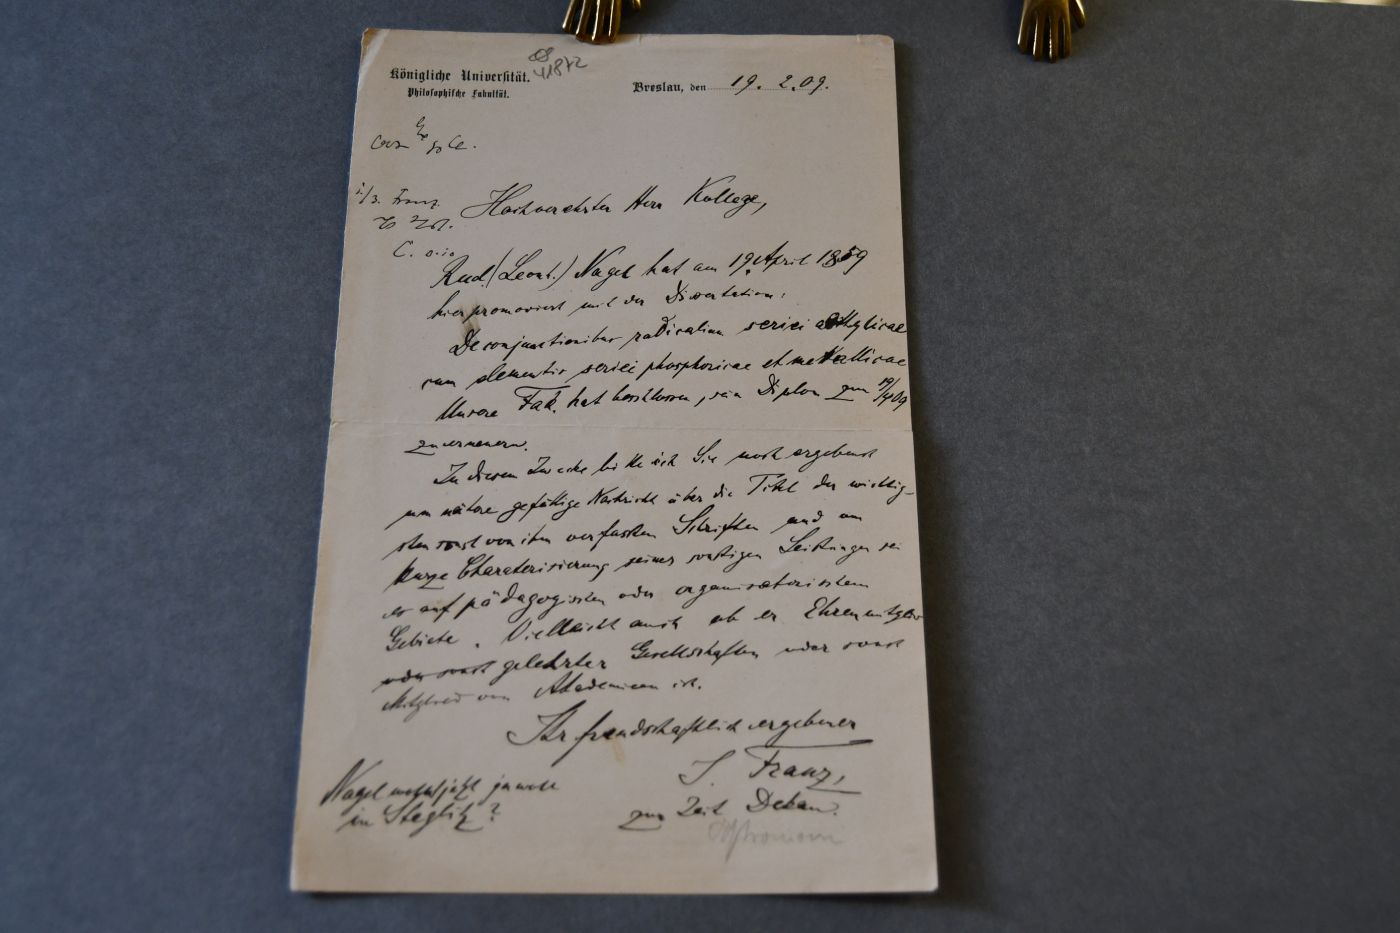 41872
Königliche Universität.
Philosophische Fakultät.
Breslau, den 19. 2. 09.
Franz.
Hochverehrter Herr Kollege,
Rud. (Leonh.) Nagel hat am 19. April 1859
hier promoviert mit der Dissertation:
De conjunctionibus radicalium seriei aethylicae
cum elementis seriei phosphoricae et metallicae
Unsere Fak. hat beschlossen, sein Diplom zum 19/4 09
zu erneuern.
Zu diesem Zwecke bitte ich Sie noch ergebenst
um nähere gefällige Nachricht über die Titel der wichtig-
sten sonst von ihm verfassten Schriften und um
kurze Charaterisierung seiner sonstigen Leistungen sei
es auf pädagogischem oder organisatorischem
Gebiete. Vielleicht auch ob er Ehrenmitglied
oder sonst gelehrter Gesellschaften oder sonst
Mitglied von Akademieen ist.
Ihr freundschaftlich ergebener
J. Franz,
zur Zeit Dekan.
Nagel wohnt jetzt ja wohl
in Steglitz?
Astronom